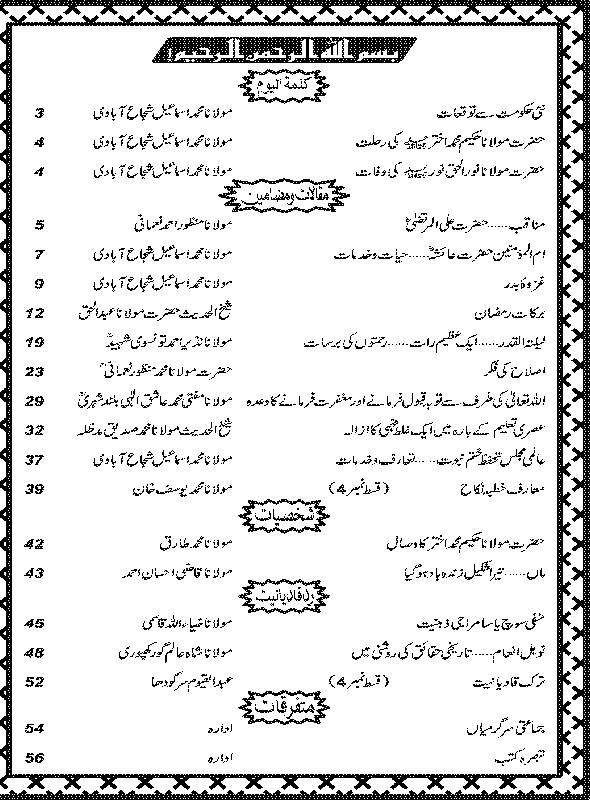 بسم اللہ الرحمن الرحیم
کلمۃ الیوم
نئی حکومت سے توقعات مولانا محمد اسماعیل شجاع آبادی 3
حضرت مولانا حکیم محمد اختر کی رحلت مولانا محمد اسماعیل شجاع آبادی 4
حضرت مولانا نور الحق نور کی وفات مولانا محمد اسماعیل شجاع آبادی 4
مقالات و مضامین
مناقب..... حضرت علی المرتضیٰؓ مولانا منظور احمد نعمانی 5
ام المؤمنین حضرت عائشہؓ..... حیات و خدمات مولانا محمد اسماعیل شجاع آبادی 7
غزوہ بدر مولانا محمد اسماعیل شجاع آبادی 9
برکات رمضان شیخ الحدیث حضرت مولانا عبدالحق 12
لیلۃ القدر..... ایک عظیم رات..... رحمتوں کی برسات مولانا نذیر احمد تونسوی شہیدؒ 19
اصلاح کی فکر حضرت مولانا محمد منظور نعمانیؒ 23
اللہ تعالیٰ کی طرف سے توبہ قبول فرمانے اور مغفرت فرمانے کا وعدہ مولانا مفتی محمد عاشق الٰہی بلند شہریؒ 29
عصری تعلیم کے بارہ میں ایک غلط فہمی کا ازالہ شیخ الحدیث مولانا محمد صدیق مدظلہ 32
عالمی مجلس تحفظ ختم نبوت..... تعارف و خدمات مولانا محمد اسماعیل شجاع آبادی 37
معارف خطبہ نکاح (قسط نمبر 4) مولانا محمد یوسف خان 39
شخصیات
حضرت مولانا حکیم محمد اختر کا وصال مولانا محمد طارق 42
ماں..... تیرا شکیل زندہ باد ہو گیا مولانا قاضی احسان احمد 43
رد قادیانیت
منفی سوچ یا سامراجی ذہنیت مولانا ضیاء اللہ قاسمی 45
نوبل انعام..... تاریخی حقائق کی روشنی میں مولانا شاہ عالم گورکھپوری 48
ترک قادیانیت (قسط نمبر 4) عبدالقیوم سرگودھا 52
متفرقات
جماعتی سرگرمیاں ادارہ 54
تبصرہ کتب ادارہ 56